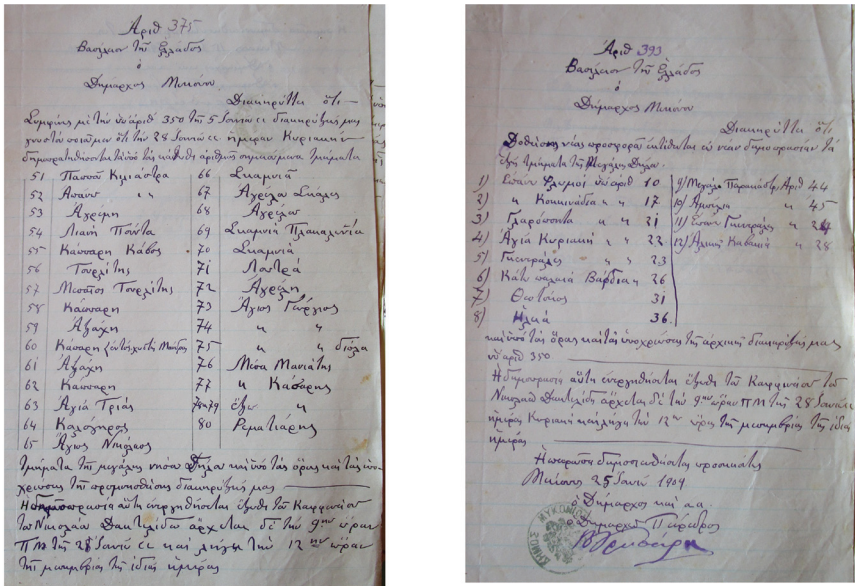 Ἀριθ 375
Βασίλειον τῆς Ἑλλάδος
ὁ
Δήμαρχος Μυκόνου
Διακηρύττει ὅτι
Συμφώνως μὲ τὴν ὑπ' ἀριθ 350 τῆς 5 Ἰουνίου διακήρυξίν μας
γνωστοποιοῦμεν ὅτι τὴν 28 Ἰουνίου ἡμέραν Κυριακὴν
δημοπρατηθήσονται ὑπὸ τὰς κάτωθι ἀριθμοὺς σημειούμενα τμήματα
51 Πασσᾶ Κιλιάστρα 66 Σκαμνιᾶ
52 Ἀπάνω " " 67 Ἀγρέλα Σκάλες
53 Ἀγρέμη 68 Ἀγρέλω
54 Λιανὴ Ποῦντα 69 Σκαμνιὰ
55 Κάσαρη Κάβος 70 Σκαμνιά
56 Τουρλίτης 71 Λουτρά
57 Τουρλίτης 72 Ἀγρέλη
58 Κάσσαρη 73 Ἅγιος Γεώργιος
59 Ἀζάχη 74 " "
60 Κάσαρη 75 " διόλα
61 Ἀζάχη 76 Μέσα Μανιάτης
62 Κάσσαρη 77 " Κάσαρης
63 Ἁγιὰ Τριάς 78 η 79 ἔξω "
64 Καλόγηρος 80 Ρεματιάρης
65 Ἅγιος Νικόλαος
Τμήματα τῆς μεγάλης νήσου Δήλου καὶ ὑπὸ τὰς ὅρας καὶ τὰς ὑπο
χρεώσεις τῆς προμνησθείσης διακηρύξεώς μας
Ἡ δημοπρασία αὕτη ἐνεργηθήσεται ἔξωθι τοῦ Καφφενείου
τοῦ Νικολάου Δακτυλίδου ἄρχεται δὲ τὴν 9ην ὥραν
ΠΜ τῆς 28 Ἰουνίου καὶ λήγει τὴν 12ην ὥραν
τῆς μεσημβρίας τῆς ἰδίας ἡμέρας
Ἀριθ 393
Βασίλειον τῆς Ἑλλάδος
ὁ
Δήμαρχος Μυκόνου
Διακηρύττει ὅτι
Δοθείσης νέας προσφορᾶς ἐκτίθενται εἰς νέαν δημοπρασίαν τὰ
ἑξῆς τμήματα τῆς Μεγάλης Δήλου
1) ὑπ' ἀριθ 10 9) Μεγάλη Ἀριθ 44
2) " Κοκκινάδια " 17 10) " 45
3) Γλαρόποντα " " 21 11) Ἐπάνω Γκεντράλες " 24
4) Ἁγία Κυριακὴ " " 22 12) " 28
5) Γκεντράλες " 23
6) Κάτω παλαιὰ Βάρδια " 26
7) 31
8) 36
καὶ ὑπὸ τὰς ὅρας καὶ τὰς ὑποχρεώσεις τῆς ἀρχικῆς διακηρύξεώς μας
ὑπ' ἀριθ 350
Ἡ δημοπρασία αὕτη ἐνεργηθήσεται ἔξωθι τοῦ Καφφενείου τοῦ
Νικολάου Δακτυλίδη ἄρχεται δὲ τὴν 9ην ὥραν ΠΜ τῆς 28 Ἰουνίου
ἡμέρας Κυριακὴ καὶ λήγει τὴν 12ην ὥρας τῆς μεσημβρίας τῆς ἰδίας
ἡμέρας
Ἡ παροῦσα δημοσιευθήσεται προσηκόντως
Μύκονος 25 Ἰουνίου 1904
ὁ Δήμαρχος καὶ α.α.
ὁ Δημαρχικὸς Πάρεδρος
ΔΗΜΟΣ ΜΥΚΟΝΙΩΝ